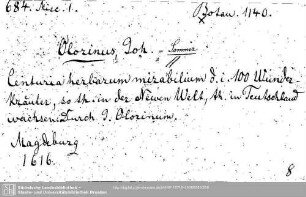 684. Misc. 1. Botan. 1140.
Olorinus, Joh. - Sommer
Centuria herbarum mirabilium d. i. 100 Wunder-
kräuter, so th. in der Newen Welt, th. in Teutschland
wachsen. Durch J. Olorinum.
Magdeburg
1616.
8
Sächsische Landesbibliothek -
Staats- und Universitätsbibliothek Dresden